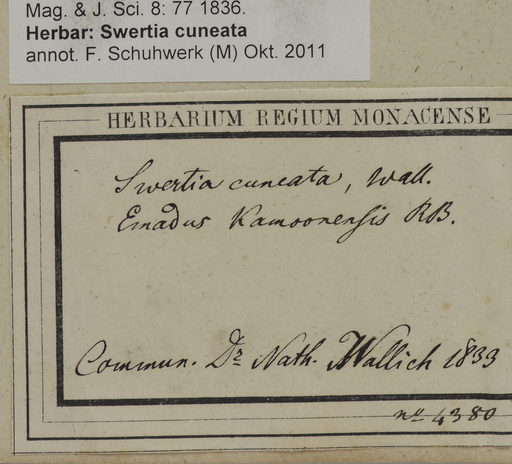 Mag. & J. Sci. 8: 77 1836.
Herbar: Swertia cuneata
annot. F. Schuhwerk (M) Okt. 2011
HERBARIUM REGIUM MONACENSE
Swertia cuneata, Wall.
Emadus Kamoonensis RB.
Commun. Dr Nath. Wallich 1833
no 4380